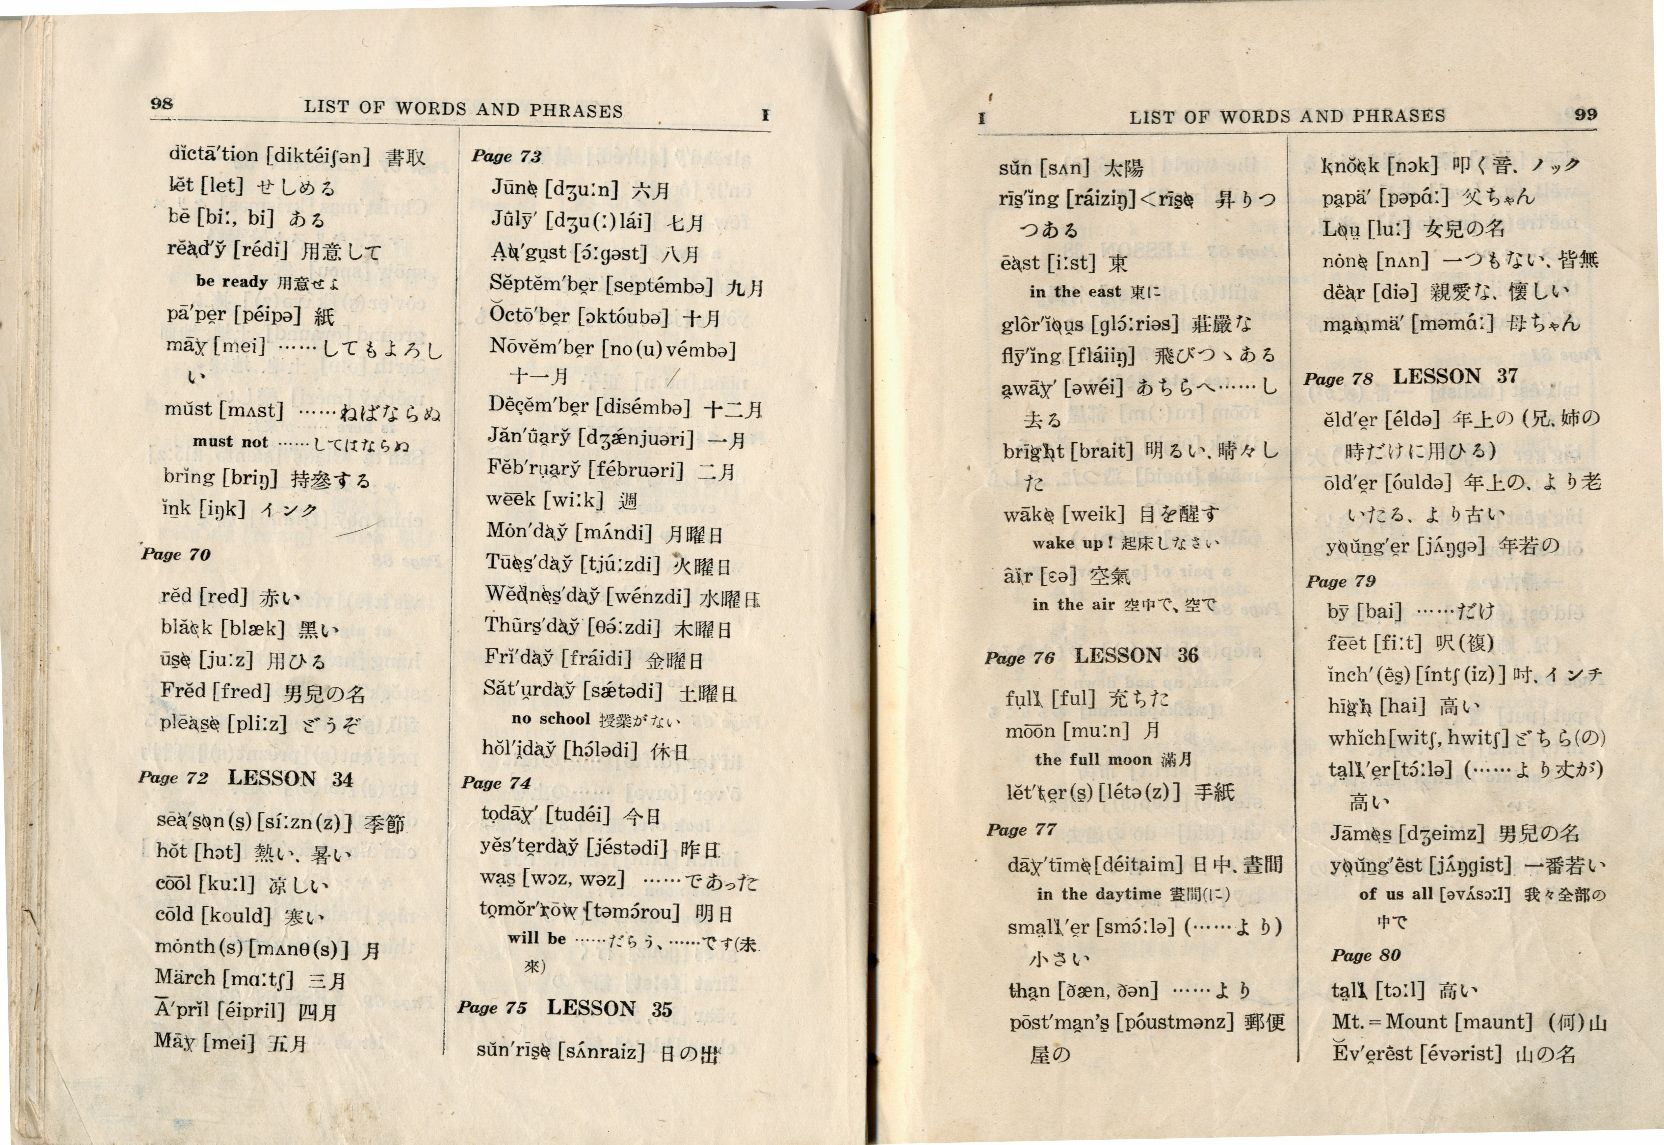 98
LIST OF WORDS AND PHRASES
I
dĭctā′tion [diktéiʃən] 書取
lĕt [let] せしめる
bē [biː, bi] ある
rĕad′y̆ [rédi] 用意して
be ready 用意せよ
pā′pe̱r [péipə] 紙
māy [mei] ……してもよろし
い
mŭst [mʌst] ……ねばならぬ
must not ……してはならぬ
brĭng [briŋ] 持參する
ĭṉk [iŋk] インク
Page 70
rĕd [red] 赤い
blăck [blæk] 黑い
ūs̱e [juːz] 用ひる
Frĕd [fred] 男兒の名
plēas̱e [pliːz] どうぞ
Page 72 LESSON 34
sēa′s̱on(s̱) [síːzn(z)] 季節
hŏt [hɔt] 熱い、暑い
co͞ol [kuːl] 凉しい
cōld [kould] 寒い
mȯnth(s) [mʌnθ(s)] 月
Märch [mɑːtʃ] 三月
Ā′prĭl [éipril] 四月
Māy [mei] 五月
Page 73
Jūne [dʒuːn] 六月
Jûlȳ′ [dʒu(ː)lái] 七月
A̤u′gu̱st [ɔ́ːgəst] 八月
Sĕptĕm′be̱r [septémbə] 九月
Ŏctō′be̱r [ɔktóubə] 十月
Nōvĕm′be̱r [no(u)vémbə]
十一月
Dē̇çĕm′be̱r [disémbə] 十二月
Jăn′ū̇a̱ry̆ [dʒǽnjuəri] 一月
Fĕb′ru̱a̱ry̆ [fébruəri] 二月
wēek [wiːk] 週
Mȯn′day̆ [mʌ́ndi] 月曜日
Tūes̱′day̆ [tjúːzdi] 火曜日
Wĕdnes̱′day̆ [wénzdi] 水曜日
Thûrs̱′day̆ [θə́ːzdi] 木曜日
Frī′day̆ [fráidi] 金曜日
Săt′u̱rday̆ [sǽtədi] 土曜日
no school 授業がない
hŏl′i̱day̆ [hɔ́lədi] 休日
Page 74
to̱dāy′ [tudéi] 今日
yĕs′te̱rday̆ [jéstədi] 昨日
wa̤s̱ [wɔz, wəz] ……であった
to̱mŏr′rōw [təmɔ́rou] 明日
will be ……だらう、……です(未
來)
Page 75 LESSON 35
sŭn′rīs̱e [sʌ́nraiz] 日の出
I
LIST OF WORDS AND PHRASES
99
sŭn [sʌn] 太陽
rīs̱′ĭng [ráiziŋ]<rīs̱e 昇りつ
つある
ēast [iːst] 東
in the east 東に
glôr′ĭou̱s [glɔ́ːriəs] 莊嚴な
flȳ′ĭng [fláiiŋ] 飛びつゝある
a̱wāy′ [əwéi] あちらへ……し
去る
brīght [brait] 明るい、晴々し
た
wāke [weik] 目を醒す
wake up! 起床しなさい
âir [ɛə] 空氣
in the air 空中で、空で
Page 76 LESSON 36
fṳll [ful] 充ちた
mo͞on [muːn] 月
the full moon 滿月
lĕt′te̱r(s̱) [létə(z)] 手紙
Page 77
dāy′tīme [déitaim] 日中、晝間
in the daytime 晝間(に)
sma̤ll′e̱r [smɔ́ːlə] (……より)
小さい
tha̱n [ðæn, ðən] ……より
pōst′ma̱n's̱ [póustmənz] 郵便
屋の
knŏck [nɔk] 叩く音、ノック
pa̱pä′ [pəpɑ́ː] 父ちゃん
Loṳ [luː] 女兒の名
nȯne [nʌn] 一つもない、皆無
dēar [diə] 親愛な、懷しい
ma̱mmä′ [məmɑ́ː] 母ちゃん
Page 78 LESSON 37
ĕld′e̱r [éldə] 年上の (兄、姉の
時だけに用ひる)
ōld′e̱r [óuldə] 年上の、より老
いたる、より古い
yoŭṉg′e̱r [jʌ́ŋgə] 年若の
Page 79
bȳ [bai] ……だけ
fēet [fiːt] 呎(複)
ĭnch′(ĕs̱) [íntʃ(iz)] 吋、インチ
hīgh [hai] 高い
whĭch[witʃ, hwitʃ]どちら(の)
ta̤ll′e̱r[tɔ́ːlə] (……より丈が)
高い
Jāmes̱ [dʒeimz] 男兒の名
yoŭṉg′ĕst [jʌ́ŋgist] 一番若い
of us all [əvʌ́sɔːl] 我々全部の
中で
Page 80
ta̤ll [tɔːl] 高い
Mt.=Mount [maunt] (何)山
Ĕv′e̱rĕst [évərist] 山の名